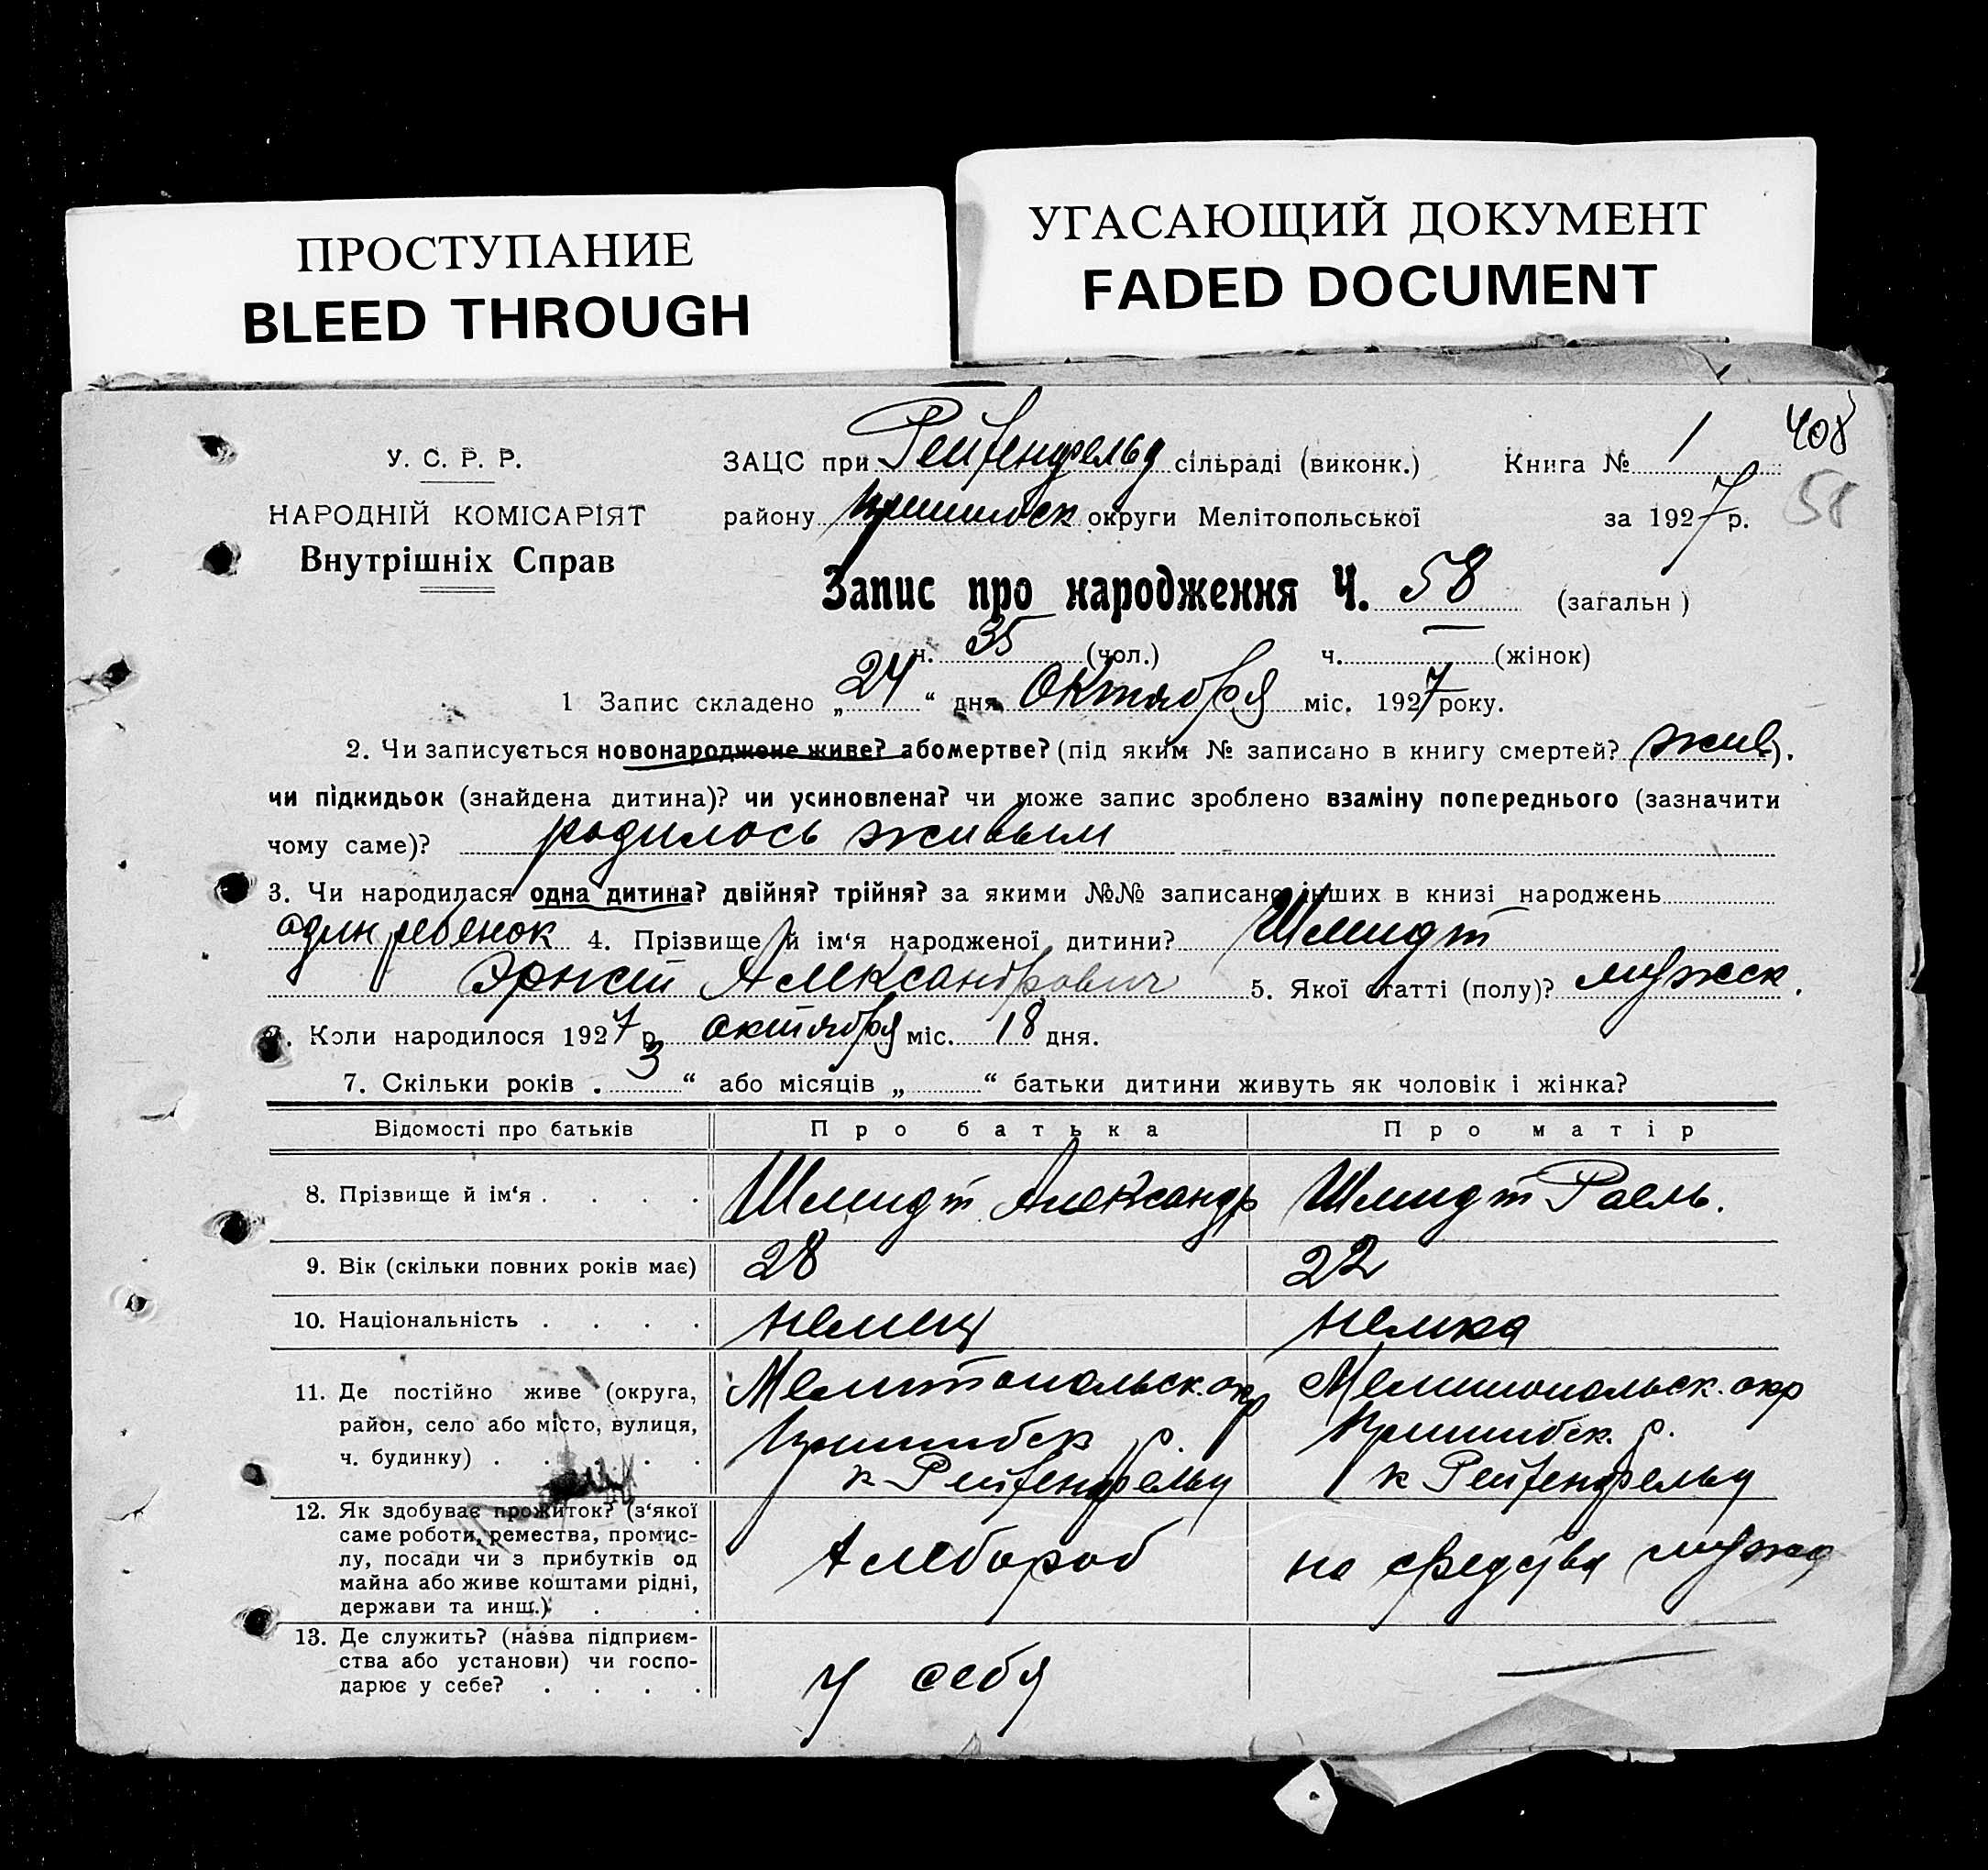 ПРОСТУПАНИЕ
BLEED THROUGH
УГАСАЮЩИЙ ДОКУМЕНТ
FADED DOCUMENT
408
58
У. С. Р. Р.
НАРОДНІЙ КОМІСАРІЯТ
Внутрішніх Справ
ЗАЦС при Рейхенфельд сільраді (виконк.) Книга № 1
району Пришибск округи Мелітопольської за 1927 р.
Запис про народження Ч. 58 (загальн)
ч. 35 (чол.) ч. — (жінок)
1 Запис складено „24“ дня Октября міс. 1927 року.
2. Чи записується новонароджене живе? або мертве? (під яким № записано в книгу смертей? жив).
чи підкидьок (знайдена дитина)? чи усиновлена? чи може запис зроблено взаміну попереднього (зазначити
чому саме)? родилось живым
3. Чи народилася одна дитина? двійня? трійня? за якими №№ записано інших в книзі народжень
один ребенок 4. Прізвище й ім‘я народженої дитини? Шмидт
Эрнст Александрович 5. Якої статті (полу)? мужск.
6. Коли народилося 1927 р. октября міс. 18 дня.
7. Скільки років . 3 “ або місяців „ “ батьки дитини живуть як чоловік і жінка?
Відомості про батьків Про батька Про матір
8. Прізвище й ім‘я . . . . Шмидт Александр Шмидт Раель.
9. Вік (скільки повних років має) 28 22
10. Національність . . . . немец немка
11. Де постійно живе (округа, Мелитопольск. окр Мелитопольск. окр
район, село або місто, вулиця, Пришибск р. Пришибск. р.
ч. будинку) . . . . . к Рейхенфельд к Рейхенфельд
12. Як здобуває прожиток? (з‘якої
саме роботи, ремества, промис-
лу, посади чи з прибутків од Хлебороб на средства мужа
майна або живе коштами рідні,
держави та инш.) . .
13. Де служить? (назва підприєм-
ства або установи) чи госпо- у себя —
дарює у себе? . . . .